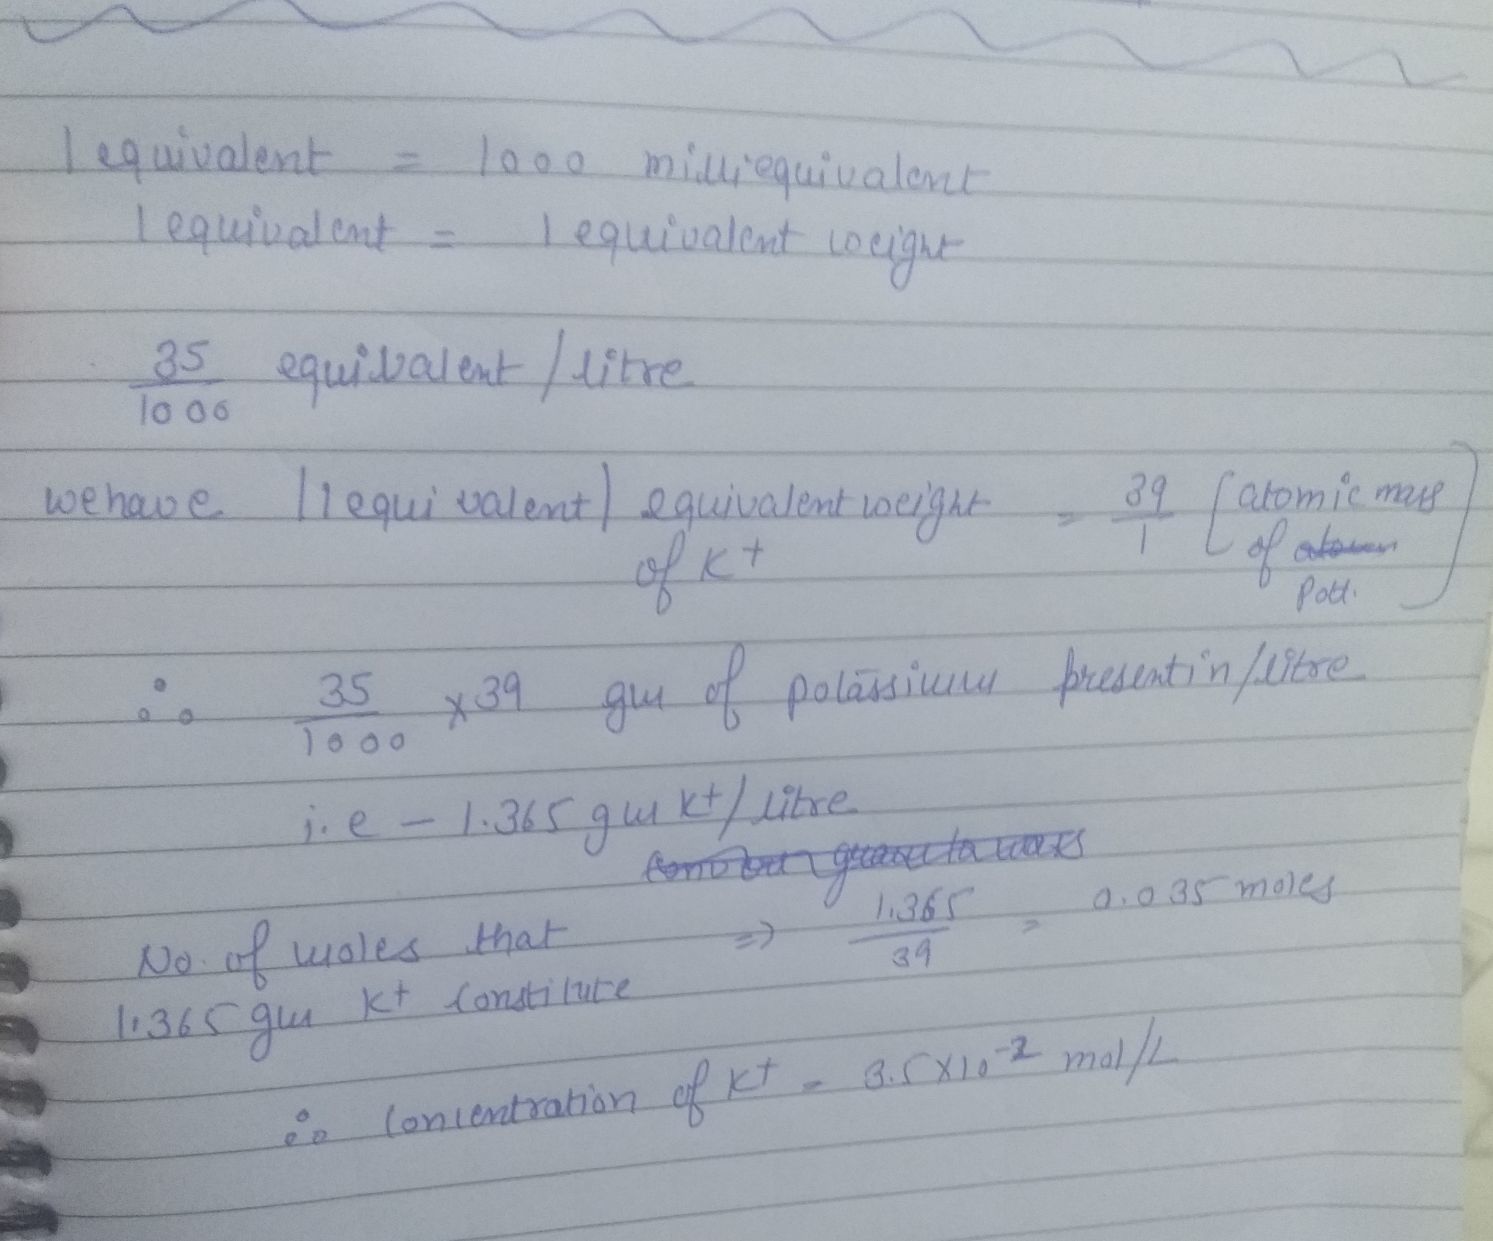 1 equivalent = 1000 milliequivalent
1 equivalent = 1 equivalent weight
35/1000 equivalent / litre
we have |1 equivalent| equivalent weight of K+ = 39/1 [atomic mass of Pott.]
∴ 35/1000 x 39 gm of potassium present in / litre
i.e - 1.365 gm K+ / litre
No. of moles that 1.365 gm K+ constitute ⇒ 1.365/39 = 0.035 moles
∴ Concentration of K+ = 3.5 x 10^-2 mol/L